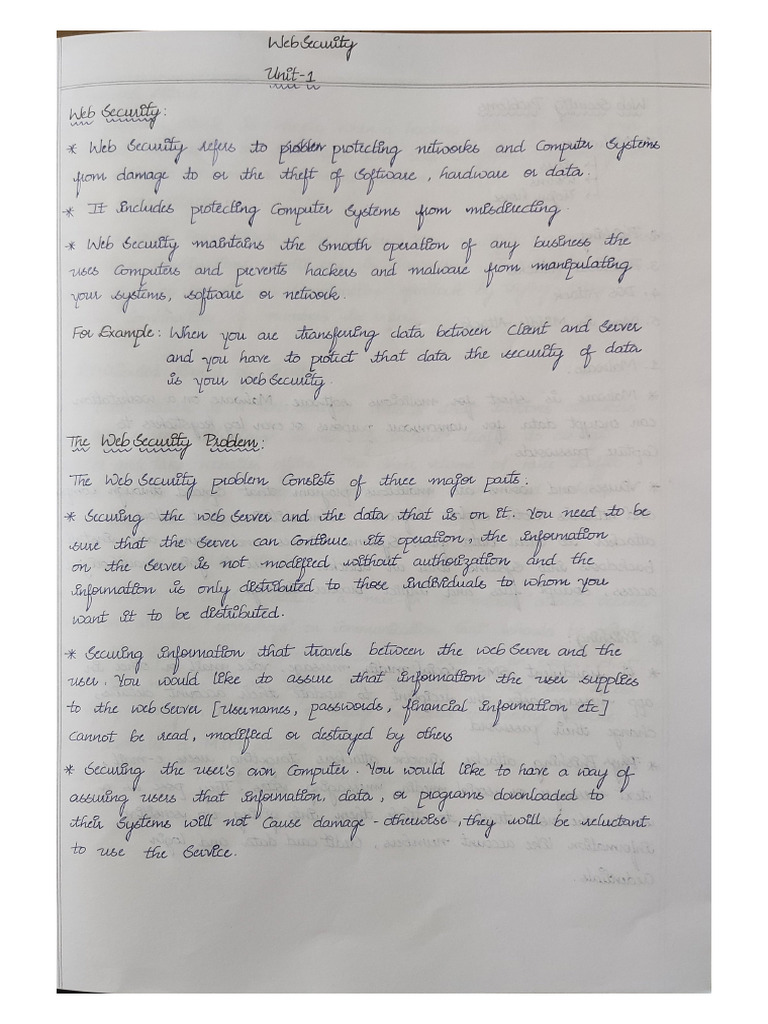 Web Security
Unit-1
Web Security:
* Web Security refers to problem protecting networks and Computer Systems
from damage to or the theft of software, hardware or data.
* It includes protecting Computer systems from misdirecting.
* Web Security maintains the smooth operation of any business the
uses Computers and prevents hackers and malware from manipulating
your systems, software or network.
For Example: When you are transferring data between Client and Server
and you have to protect that data the security of data
is your web security.
The Web Security Problem:
The Web Security problem Consists of three major parts.
* Securing the web server and the data that is on it. You need to be
sure that the server can continue its operation, the information
on the server is not modified without authorization and the
information is only distributed to those individuals to whom you
want it to be distributed.
* Securing information that travels between the web server and the
user. You would like to assure that information the user supplies
to the web server [usernames, passwords, financial information etc]
cannot be read, modified or destroyed by others
* Securing the user's own Computer. You would like to have a way of
assuring users that information, data, or programs downloaded to
their systems will not cause damage - otherwise, they will be reluctant
to use the service.